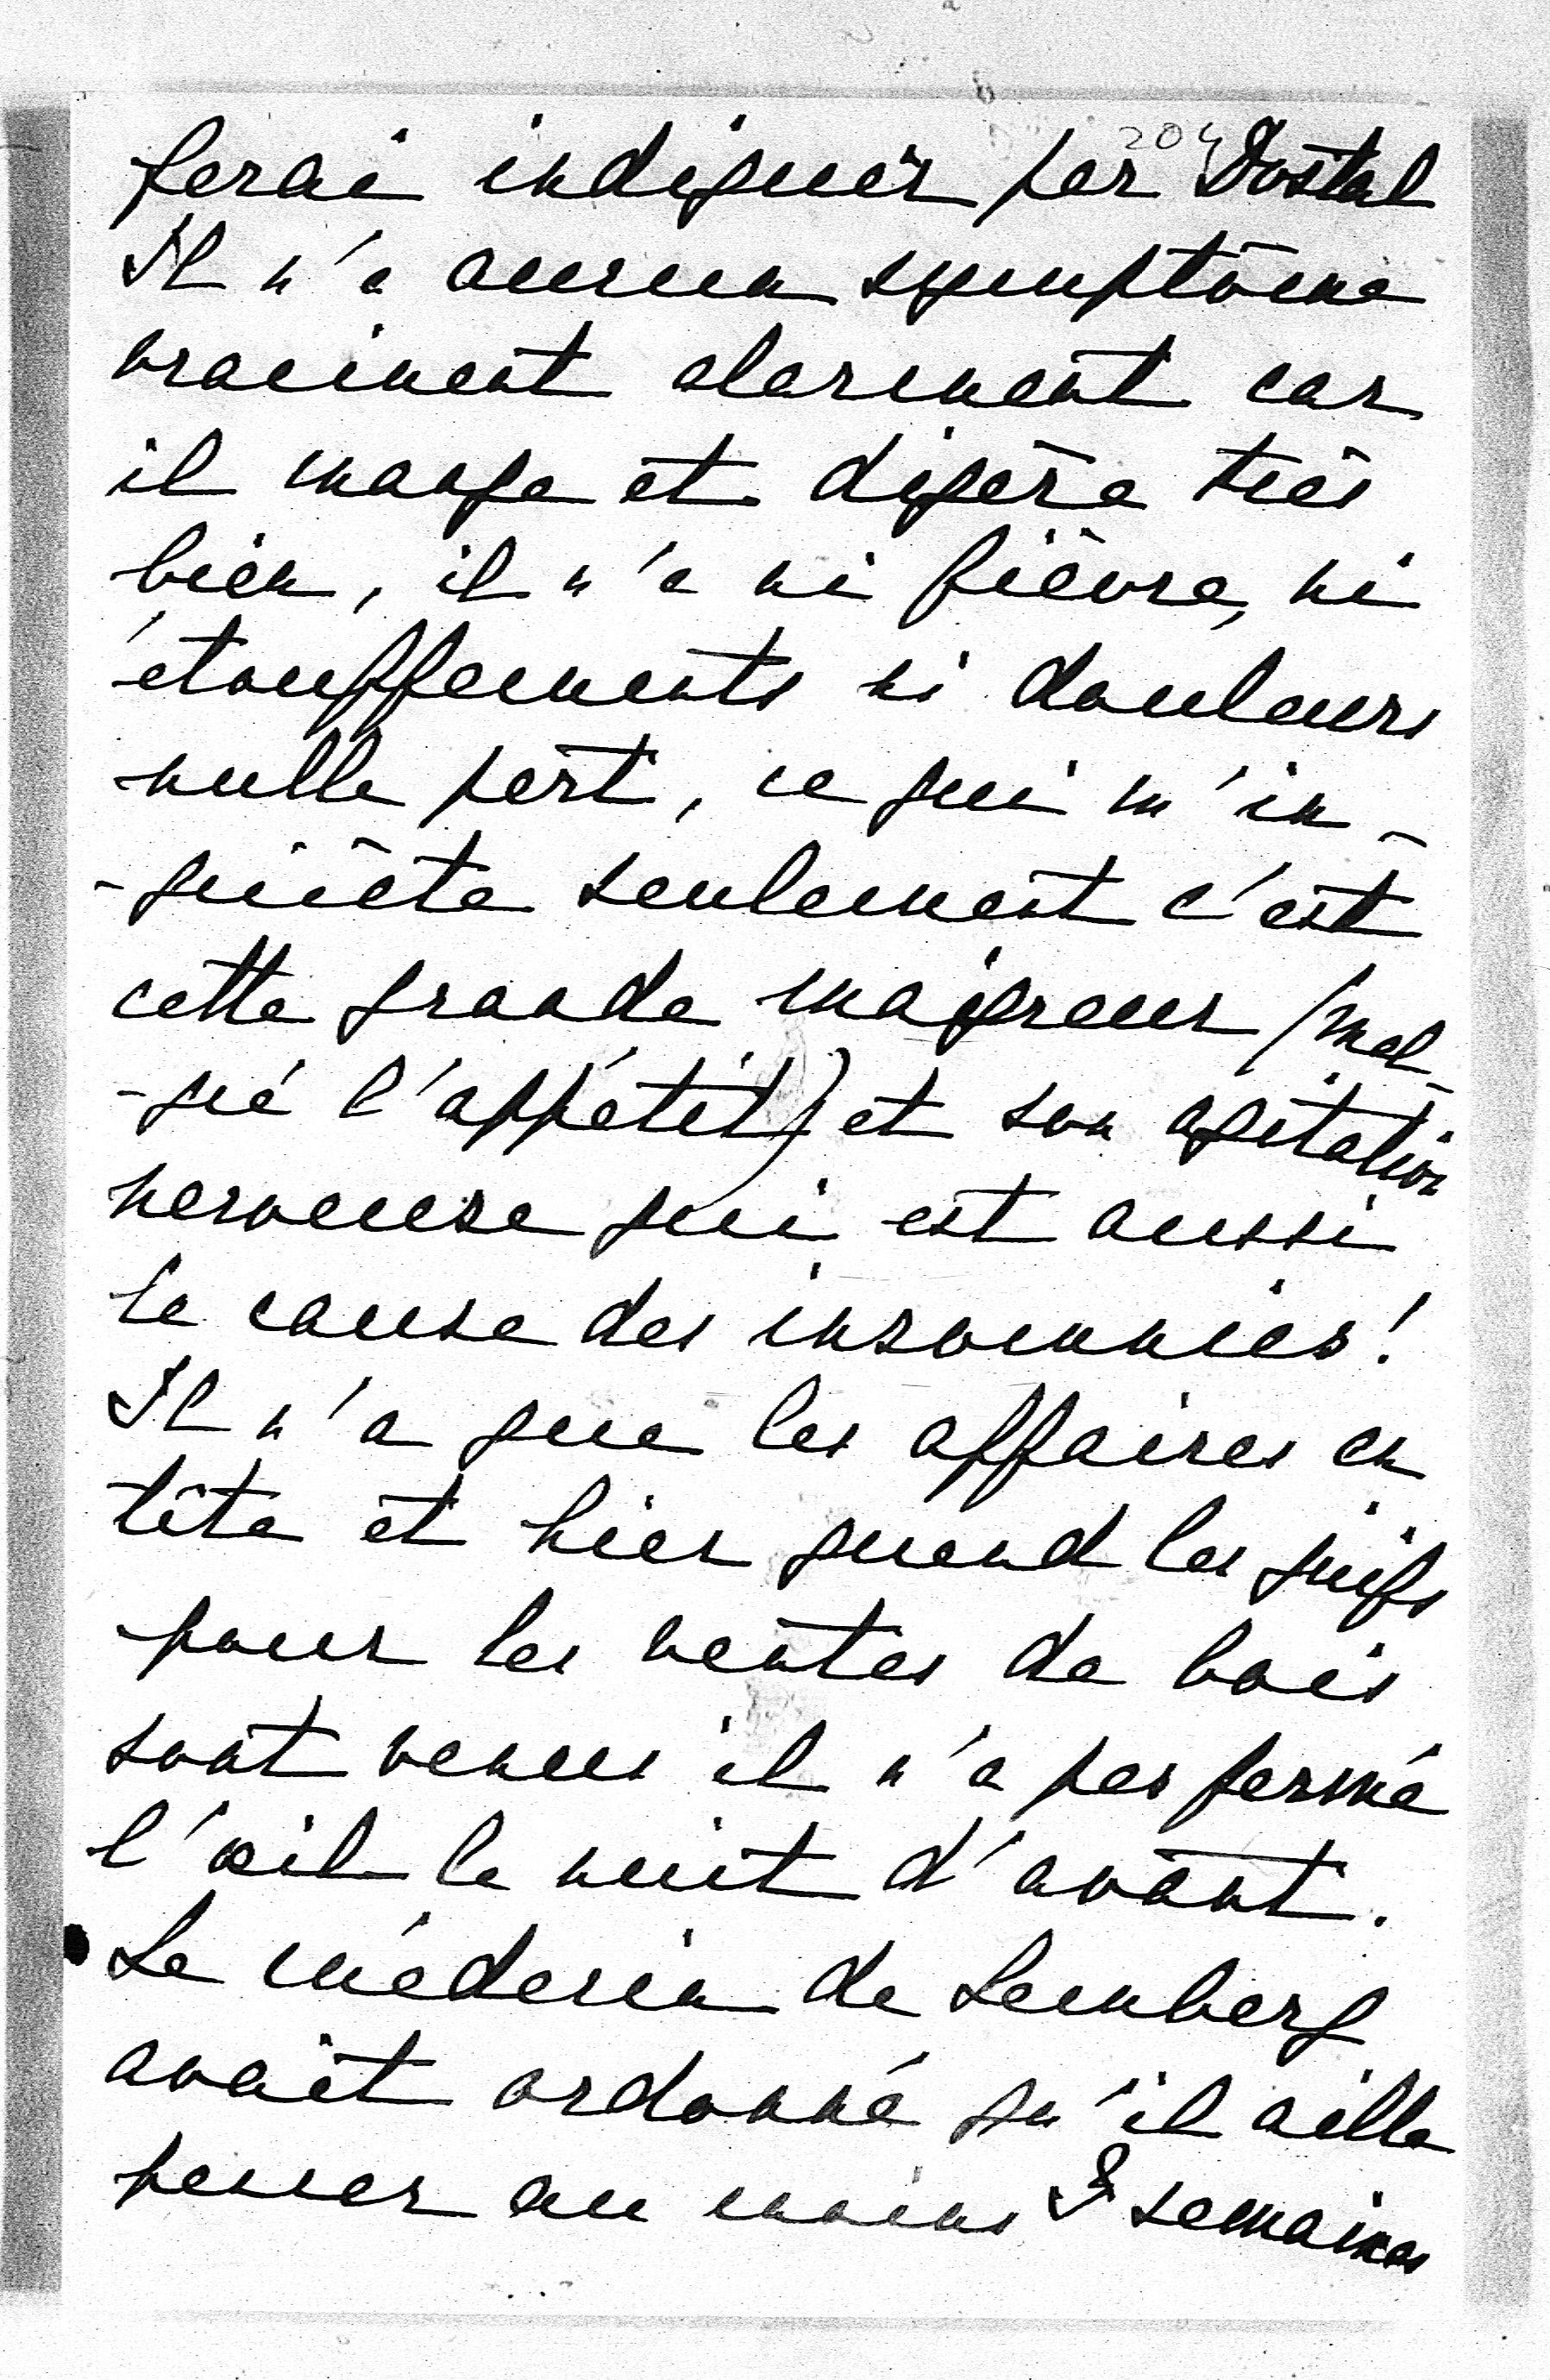 204
ferai indiquer par Dostal
Il n'a aucun symptôme
vraiment alarmant car
il mange et digère très
bien, il n'a ni fièvre, ni
étouffements ni douleurs
nulle part, ce qui m'in-
-quiète seulement c'est
cette grande maigreur (mal-
-gré l'appétit) et son agitation
nerveuse qui est aussi
la cause des insomnies!
Il n'a que les affaires en
tête et hier quand les juifs
pour les ventes de bois
sont venus il n'a pas fermé
l'œil la nuit d'avant.
Le médecin de Lemberg
avait ordonné qu'il aille
passer au moins semaines